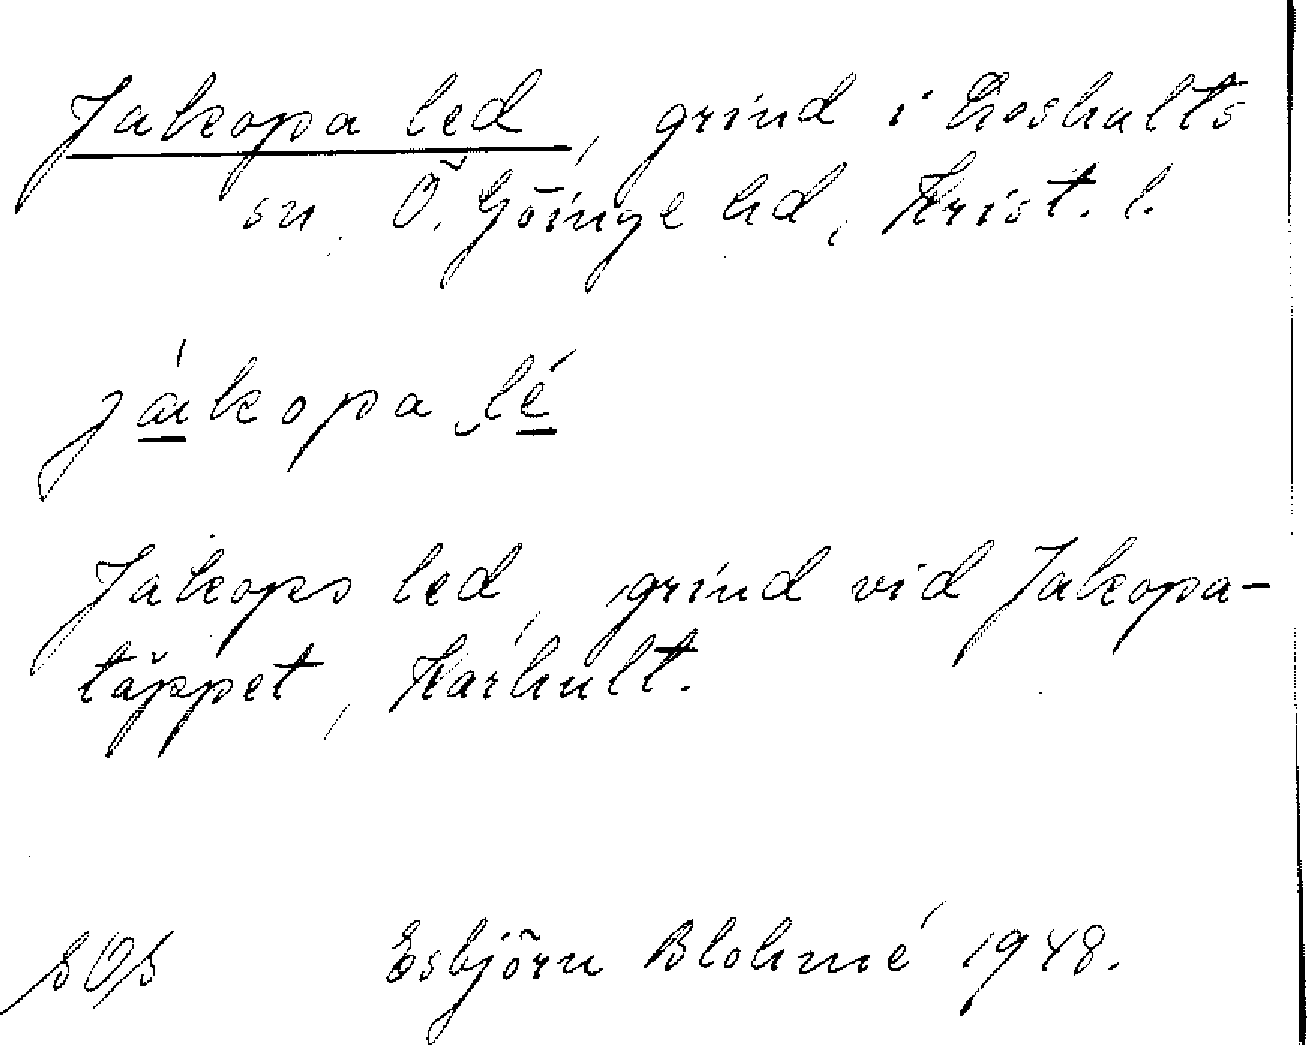 Jakopa led, grind i Loshults
sn. Ö. Göinge hd, Krist. l.
jákopa lé
Jakops led, grind vid Jakopa-
täppet, Kärhult.
SOS Esbjörn Blohmé 1948.